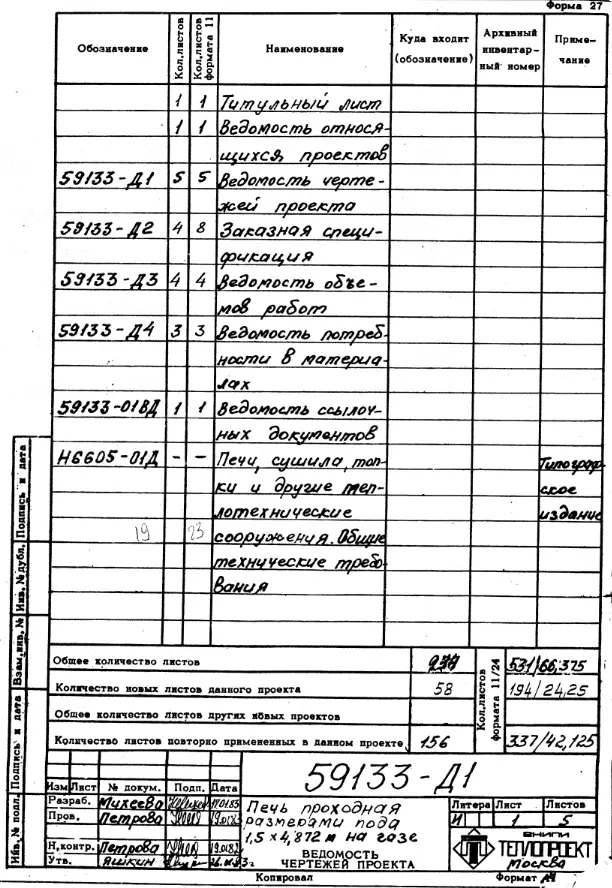 Форма 27
Обозначение Кол.листов Кол.листов формата 11 Наименование Куда входит (обозначение) Архивный инвентарный номер Примечание
1 1 Титульный лист
1 1 Ведомость относя-
щихся проектов
59133-Д1 5 5 Ведомость черте-
жей проекта
59133-Д2 4 8 Заказная специ-
фикация
59133-Д3 4 4 Ведомость объе-
мов работ
59133-Д4 3 3 Ведомость потреб-
ности в материа-
лах
59133-01ВД 1 1 Ведомость ссылоч-
ных документов
Н6605-01Д - - Печи, сушила, топ- Типограф-
ки и другие теп- ское
лотехнические издание
19 23 сооружения. Общие
технические требо-
вания
Общее количество листов 531/66,375
Количество новых листов данного проекта 58 194/24,25
Общее количество листов других новых проектов
Количество листов повторно примененных в данном проекте 156 337/42,125
Кол.листов формата 11/24
Инв.№ подл. Подпись и дата Взам.инв.№ Инв.№ дубл. Подпись и дата
59133-Д1
Изм Лист № докум. Подп. Дата
Разраб. Михеева
Пров. Петрова
Н.контр. Петрова
Утв. Яшкин
Печь проходная
размерами пода
1,5 х 4,872 м на газе
ВЕДОМОСТЬ
ЧЕРТЕЖЕЙ ПРОЕКТА
Литера Лист Листов
И 1 5
ВНИПИ
ТЕПЛОПРОЕКТ
Москва
Копировал Формат А4